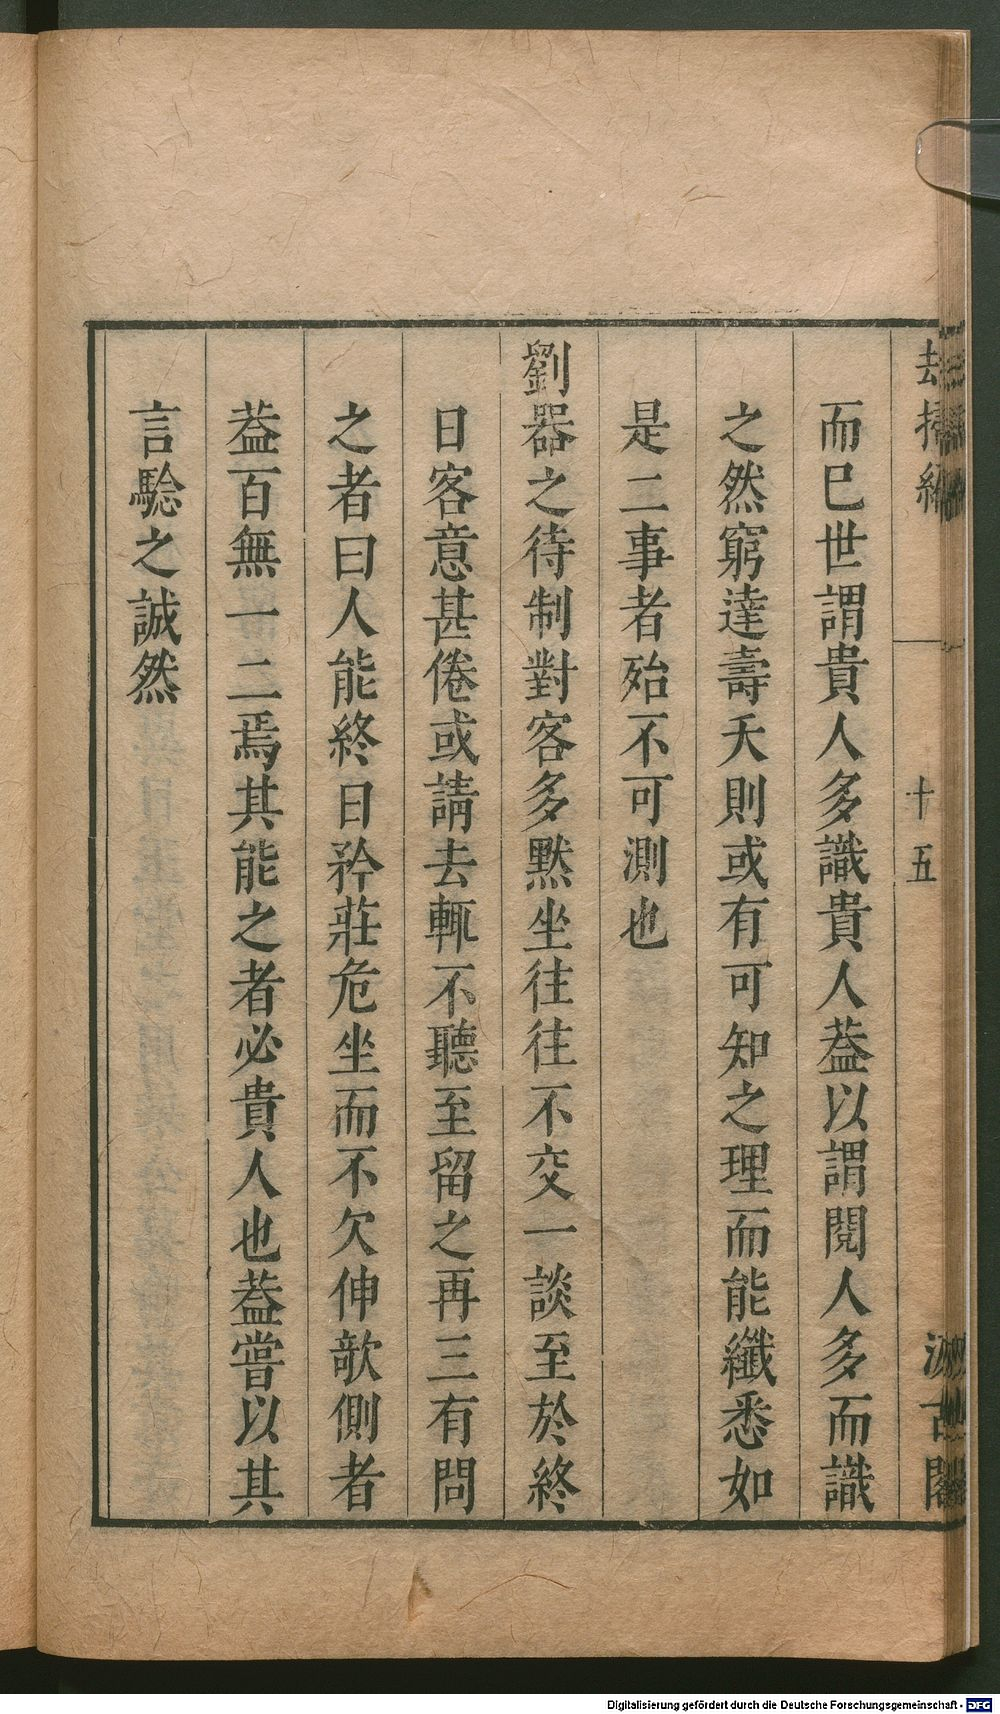 却掃編
十五
汲古閣
而巳世謂貴人多識貴人葢以謂閱人多而識
之然窮達壽夭則或有可知之理而能纖悉如
是二事者殆不可測也
劉器之待制對客多默坐往往不交一談至於終
日客意甚倦或請去輒不聽至留之再三有問
之者曰人能終日矜莊危坐而不欠伸欹側者
葢百無一二焉其能之者必貴人也葢嘗以其
言驗之誠然
Digitalisierung gefördert durch die Deutsche Forschungsgemeinschaft - DFG